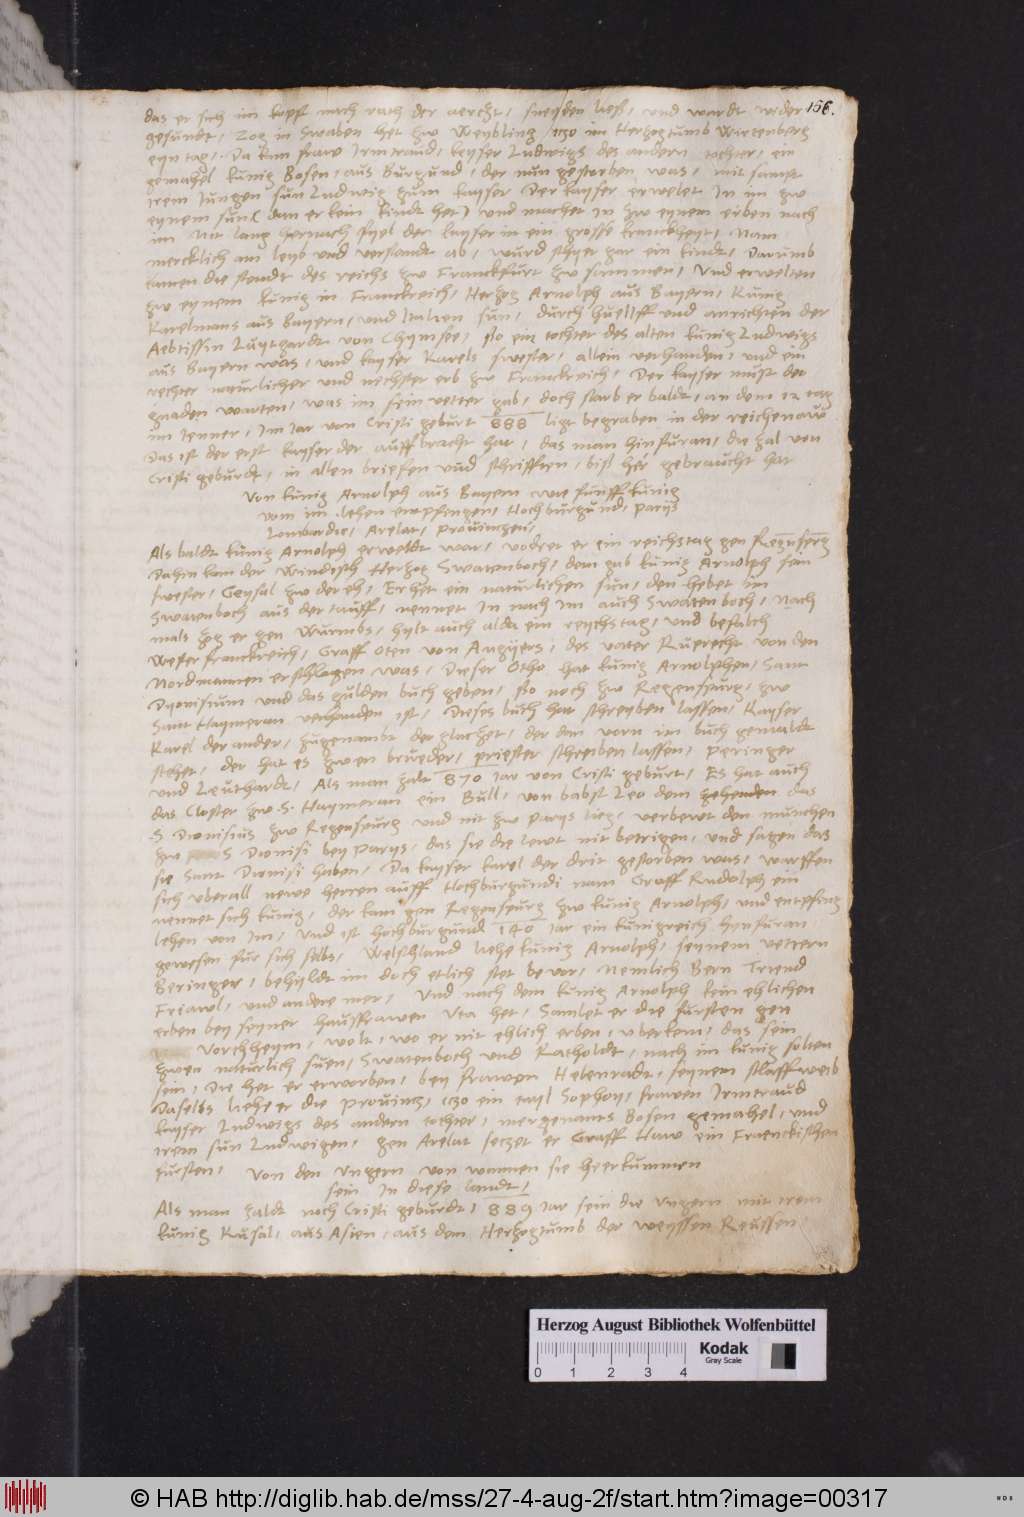 156.
das er sich im kopf nach rath der aerczt, sneyden ließ, und wardt wider
gesundt, Zog in Swaben het zw Weybling / itzo im Herzogtumb Wirtenberg
eyn tag, Da kam fraw Irmtraud, keyser Ludwigs des andern tochter, ein
gemahel kunig Bosen, aus Burgund, der nun gestorben was, mit sampt
irem Jungen sun Ludwig zum kayser Der kayser erwelet In im zw
eynem sun ( dan er kein kindt het ) und machet In zw eynem erben nach
im Nit lang hernach fyel der kayser in ein grosse kranckheyt, Nam
mercklich am leyb und verstandt ab, wurd schyer gar ein kindt, Darumb
kamen die stendt des reichs zw Franckfurt zw sammen, Und erwelten
zw eynem kunig in Franckreich, Herzog Arnolph aus Bayern, Kunig
Karelmans aus Bayern, und Italien sun, durch huelff und anrichten der
Aebtissin Luytgardt von Chymsee, so ein tochter des alten kunig Ludwigs
aus Bayern was, und kayser Karels swester, allein verhanden, und ein
rechter naturlicher und nechster erb zw Franckreich, Der kayser must der
gnaden warten, was im sein vetter gab, doch starb er baldt, an dem 12 tag
im Jenner, Im Iar von Cristi geburt 888 ligt begraben in der reichenaw
Das ist der erst kayser der auffbracht hat, das man hinfuran, die zal von
Cristi geburdt, in allen briefen und schrifften, biß her gebraucht hat
Von kunig Arnolph aus Bayern wie funff kunig
vom im lehen empfingen, Hochburgund, Parys
Lombardie, Arelat, Provingen,
Als baldt kunig Arnolph erweldt war, vodret er ein reichstag gen Regnsperg
Dahin kam der Windisch Herzog Swatenboch, dem gab kunig Arnolph sein
swester, Geysul zw der eh, Er het ein naturlichen sun, den hebet im
Swatenboch aus der tauff, nennet In nach Im auch Swatenboch, Nach
mals zog er gen Wurmbs, hylt auch alda ein reychstag, und befalch
Westerfranckreich, Graff Oten von Angyers, des vater Ruprecht von den
Nordmannen erschlagen was, Dieser Otho hat kunig Arnolphen, Sant
Dyonisium und das gulden buch geben, so noch zw Regenspurg, zw
Sant Haymeran verhanden ist, Dieses buch hat schreyben lassen, Kayser
Karel der ander, zugenambt der glachet, der dan vorn im buch gemaldt
stehet, der hat es zwen brueder, priester schreiben lassen, Peringer
und Leuthardt, Als man zalt 870 Iar von Cristi geburt, Es hat auch
das Closter zw S. Haymeran ein Bull, von babst Leo dem zehenden das
S Dionisius zw Regenspurg und nit zw Parys lieg, verbewt den munchen
zw S Dionisi bey Parys, das sie die lewt nit betrigen, und sagen das
sie Sant Dionisi haben, Da kayser karel der drit gestorben was, warffen
sich uberall newe herren auff Hochburgundi nam Graff Rudolph ein
nennet sich kunig, der kam gen Regenspurg zw kunig Arnolph, und entpfing
lehen von Im, Und ist hochburgund 140 Iar ein kunigreich hynfuran
gewesen fur sich selbs, Welschland liehe kunig Arnolph, seynem vettern
Beringer, behyldt im doch etlich stet bevor, Nemlich Bern Triend
Friawl, und andere mer, Und nach dem kunig Arnolph kein ehlichen
erben bey seyner haussfrawen Uta het, Samlet er die fursten gen
Vorchheym, wolt, wo er nit ehlich erben, uberkem, das sein
zwen naturlich suen, Swatenboch und Ratholdt, nach im kunig solten
sein, Die het er erworben, bey frawen Helenradt, seynem schlaffweib
Daselbs liehe er die Provintz, itzo ein tayl Sophoy, frawen Irmtraud
kayser Ludwigs des andern tochter, mergenants Bosen gemahel, und
irem sun Ludwigen, gen Arelat seczet er Graff Haw ein Franckischen
fursten,
Von den Ungern von wannen sie heerkummen
sein In diese landt,
Als man zaldt nach Cristi geburdt, 889 Iar sein die Ungern mit irem
kunig Kusal, aus Asien, aus dem Herzogtumb der weyssen Reussen
Herzog August Bibliothek Wolfenbüttel
Kodak
Gray Scale
0 1 2 3 4
© HAB http://diglib.hab.de/mss/27-4-aug-2f/start.htm?image=00317